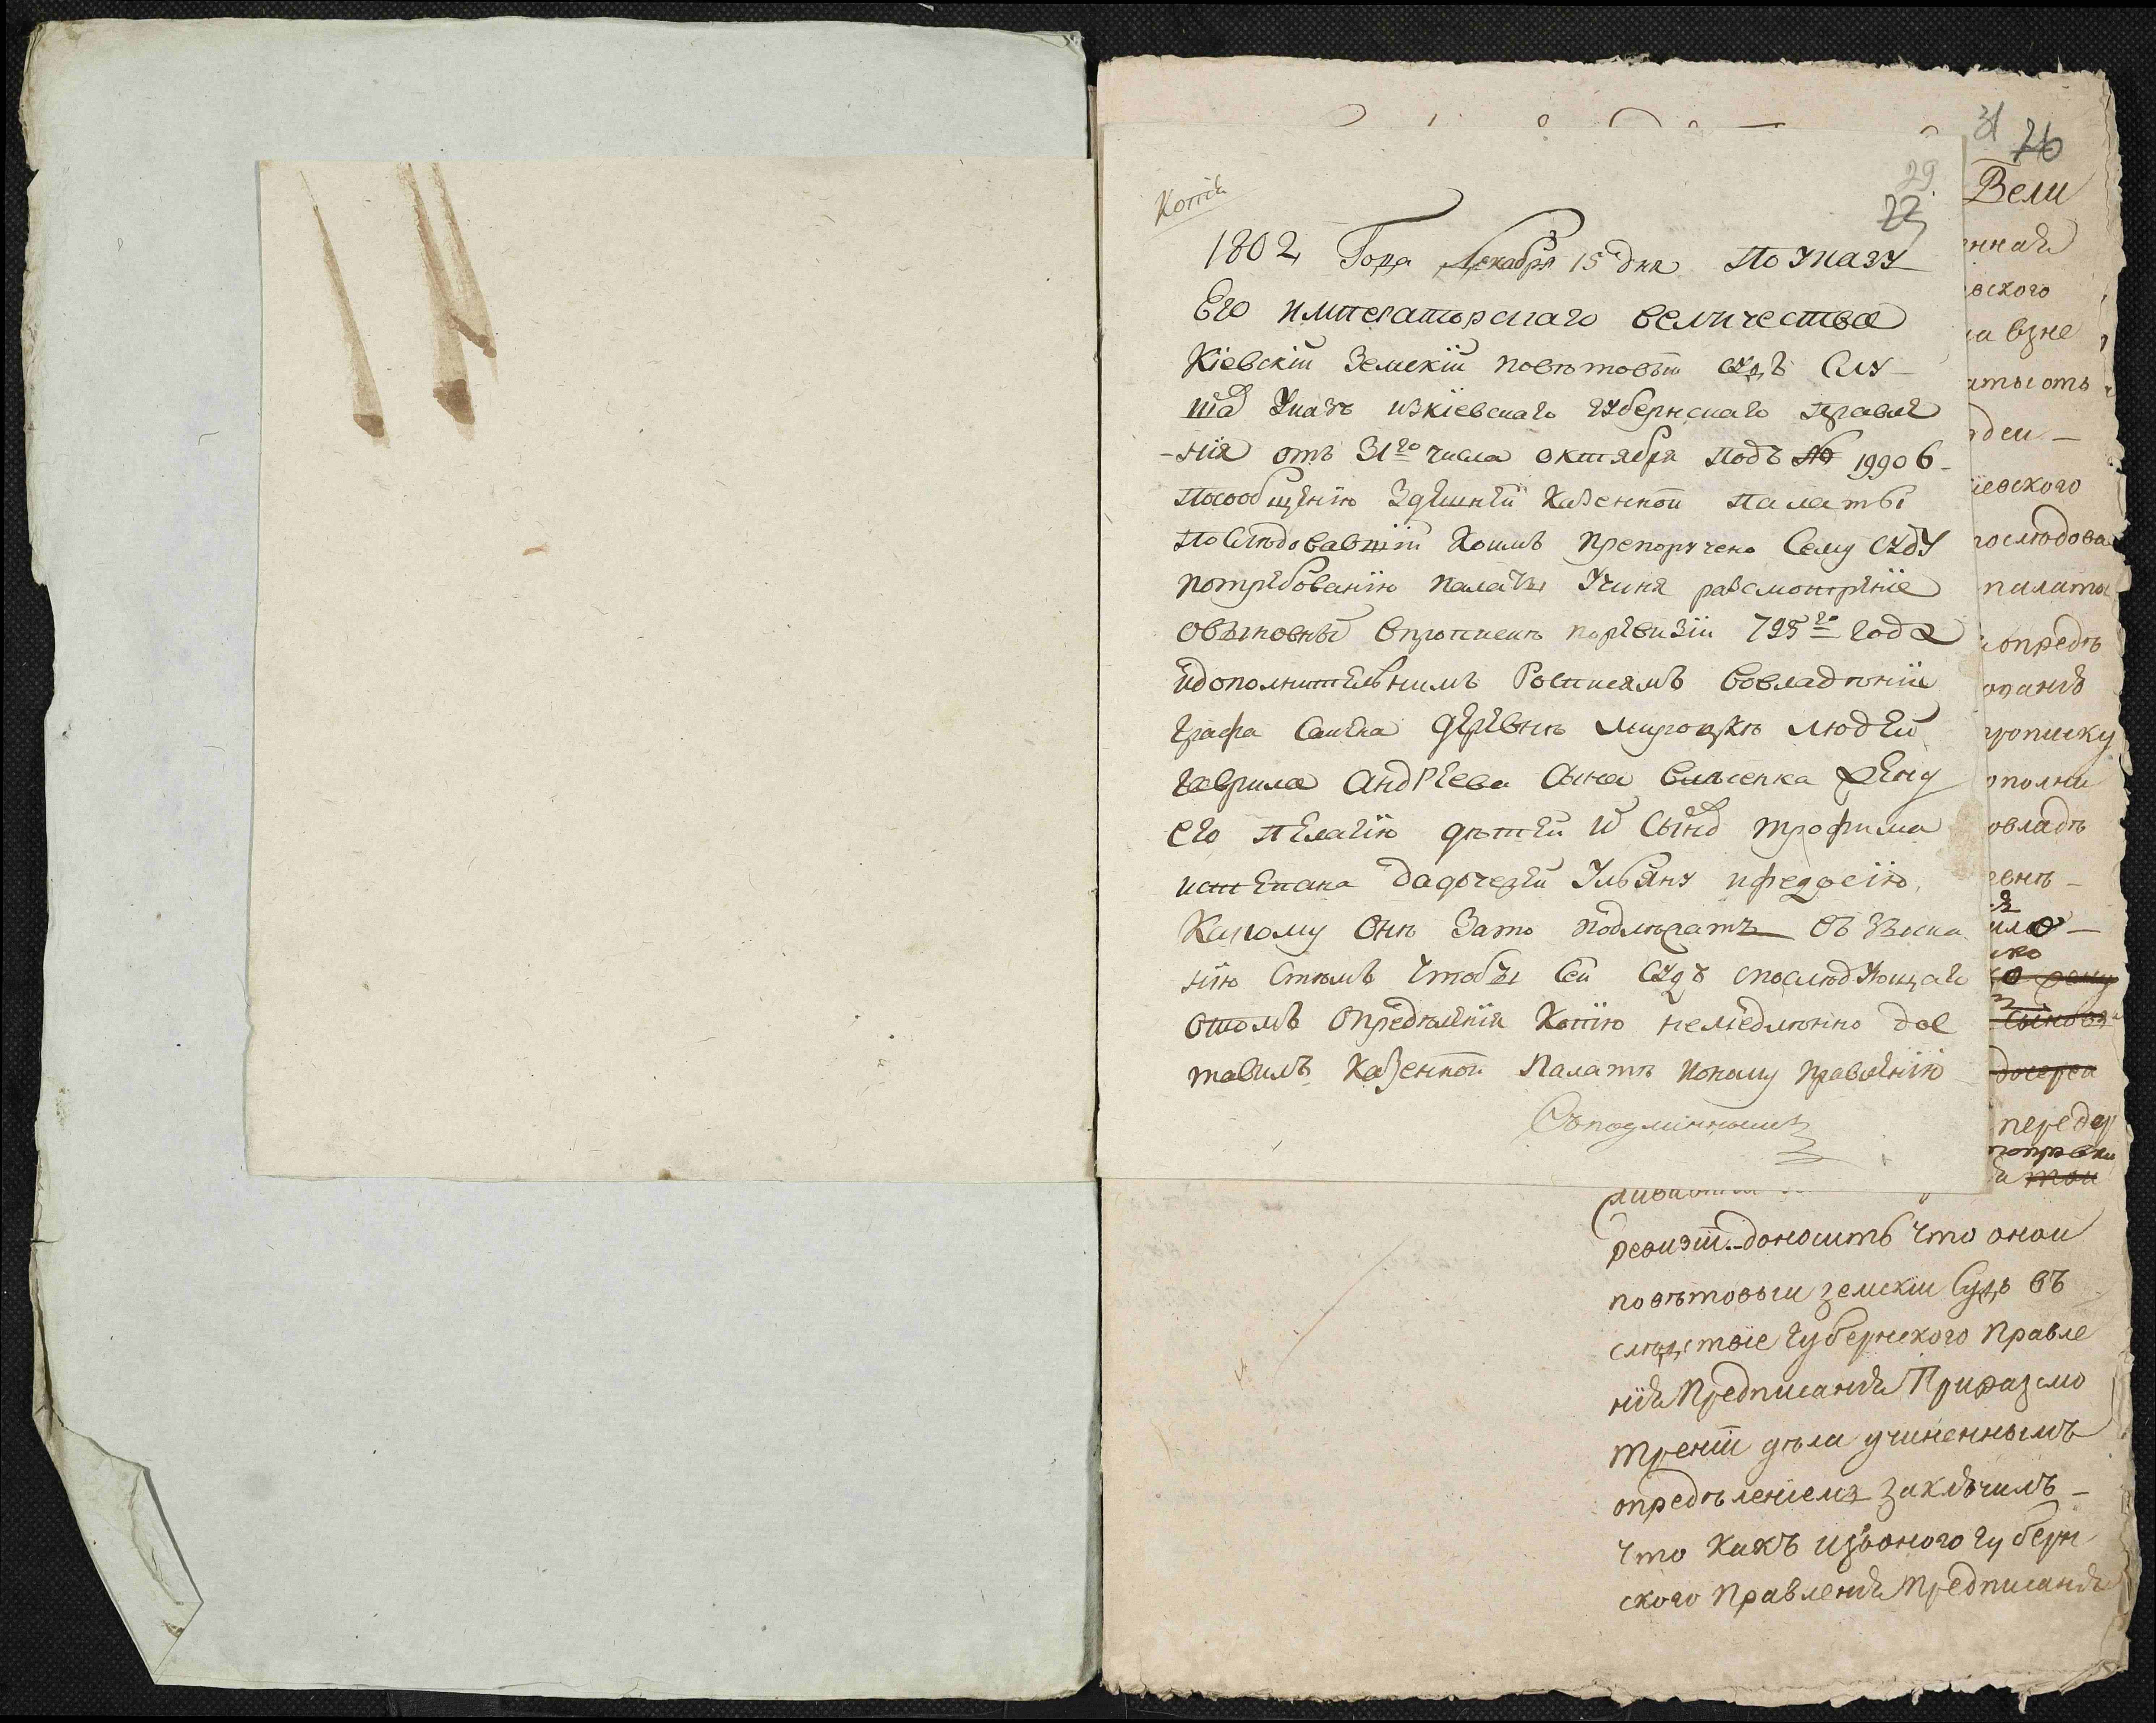 31 26
29
22
Копія
1802 Года Декабря 15 дня По Указу
Его императорскаго величества
Кіевскій Земскій повѣтовый судъ Слу
шал Указъ изкіевскаго губернскаго правле
-нія отъ 31го числа октября подъ № 19906-
посообщенію здешней Казенной палаты
послѣдовавшій Коимъ препоручено Сему суду
потребованію палаты Учиня разсмотреніе
овъписке поревизіи 795го года
идополнительнимъ Росписямъ вовладѣніи
графа деревнѣ мироцкѣ людей
гаврила Андреева Сына жену
его пелагію дѣтей Сынов трофима
истепана дадочерей Ульяну ифедосію,
Какому Онѣ Зато подлежатъ взиска
нію Стѣмъ Чтобы Сей Судъ споследующаго
отомъ Определенія Копію немедлѣнно дос
тавилъ Казенной Палатѣ Ионому правленію
Съподлиннымъ
Вели
нная
вского
а взне
аты отъ
деи -
іевского
послюдова
палаты
опредѣ
прописку
ополни
овладѣ
евнѣ -
ило -
ко
жену
Сыновя
дочереи
переде
и тои
ревизіи доноситъ что онои
повѣтовыи земскіи Судъ въ
слюдствіе губернского Правле
нія Предписанія Приразсмо
треніи дѣла учиненнымъ
опредѣленіемъ заклучилъ -
что какъ изъоного губерн
ского Правленія Предписанія